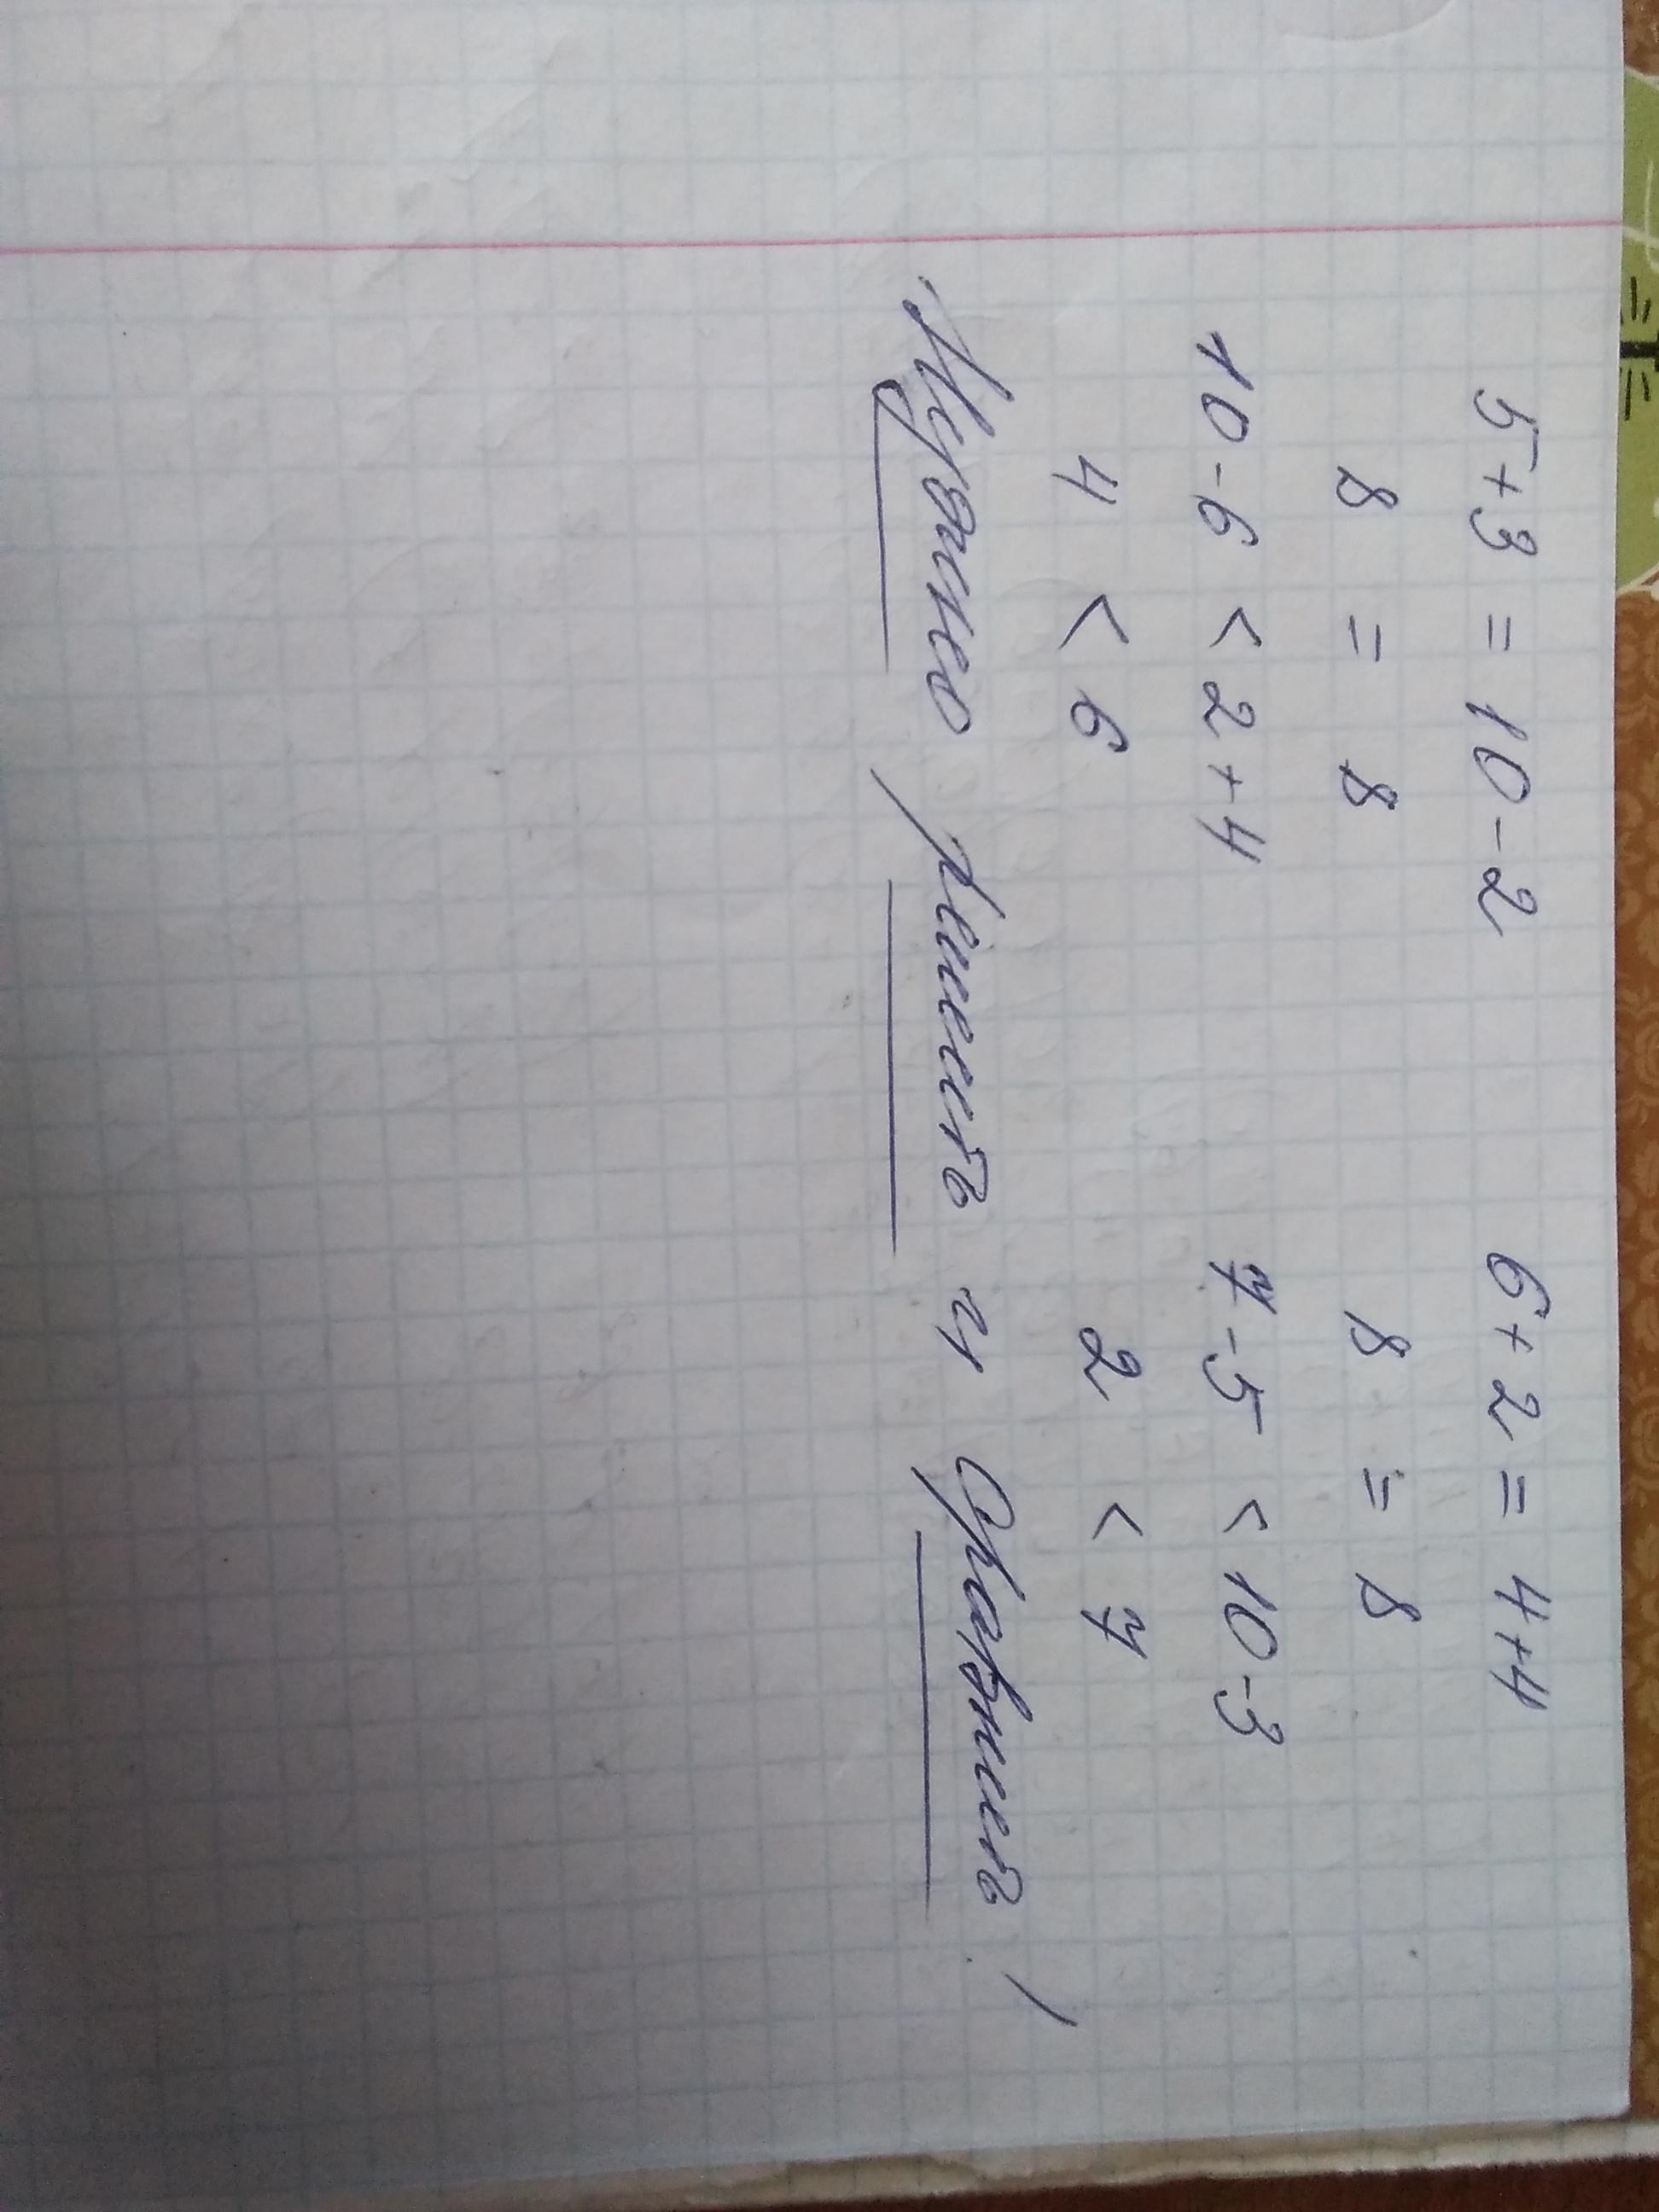 5+3 = 10-2 6+2 = 4+4
8 = 8 8 = 8
10-6 < 2+4 7-5 < 10-3
4 < 6 2 < 7
Нужно решить и сравнить!